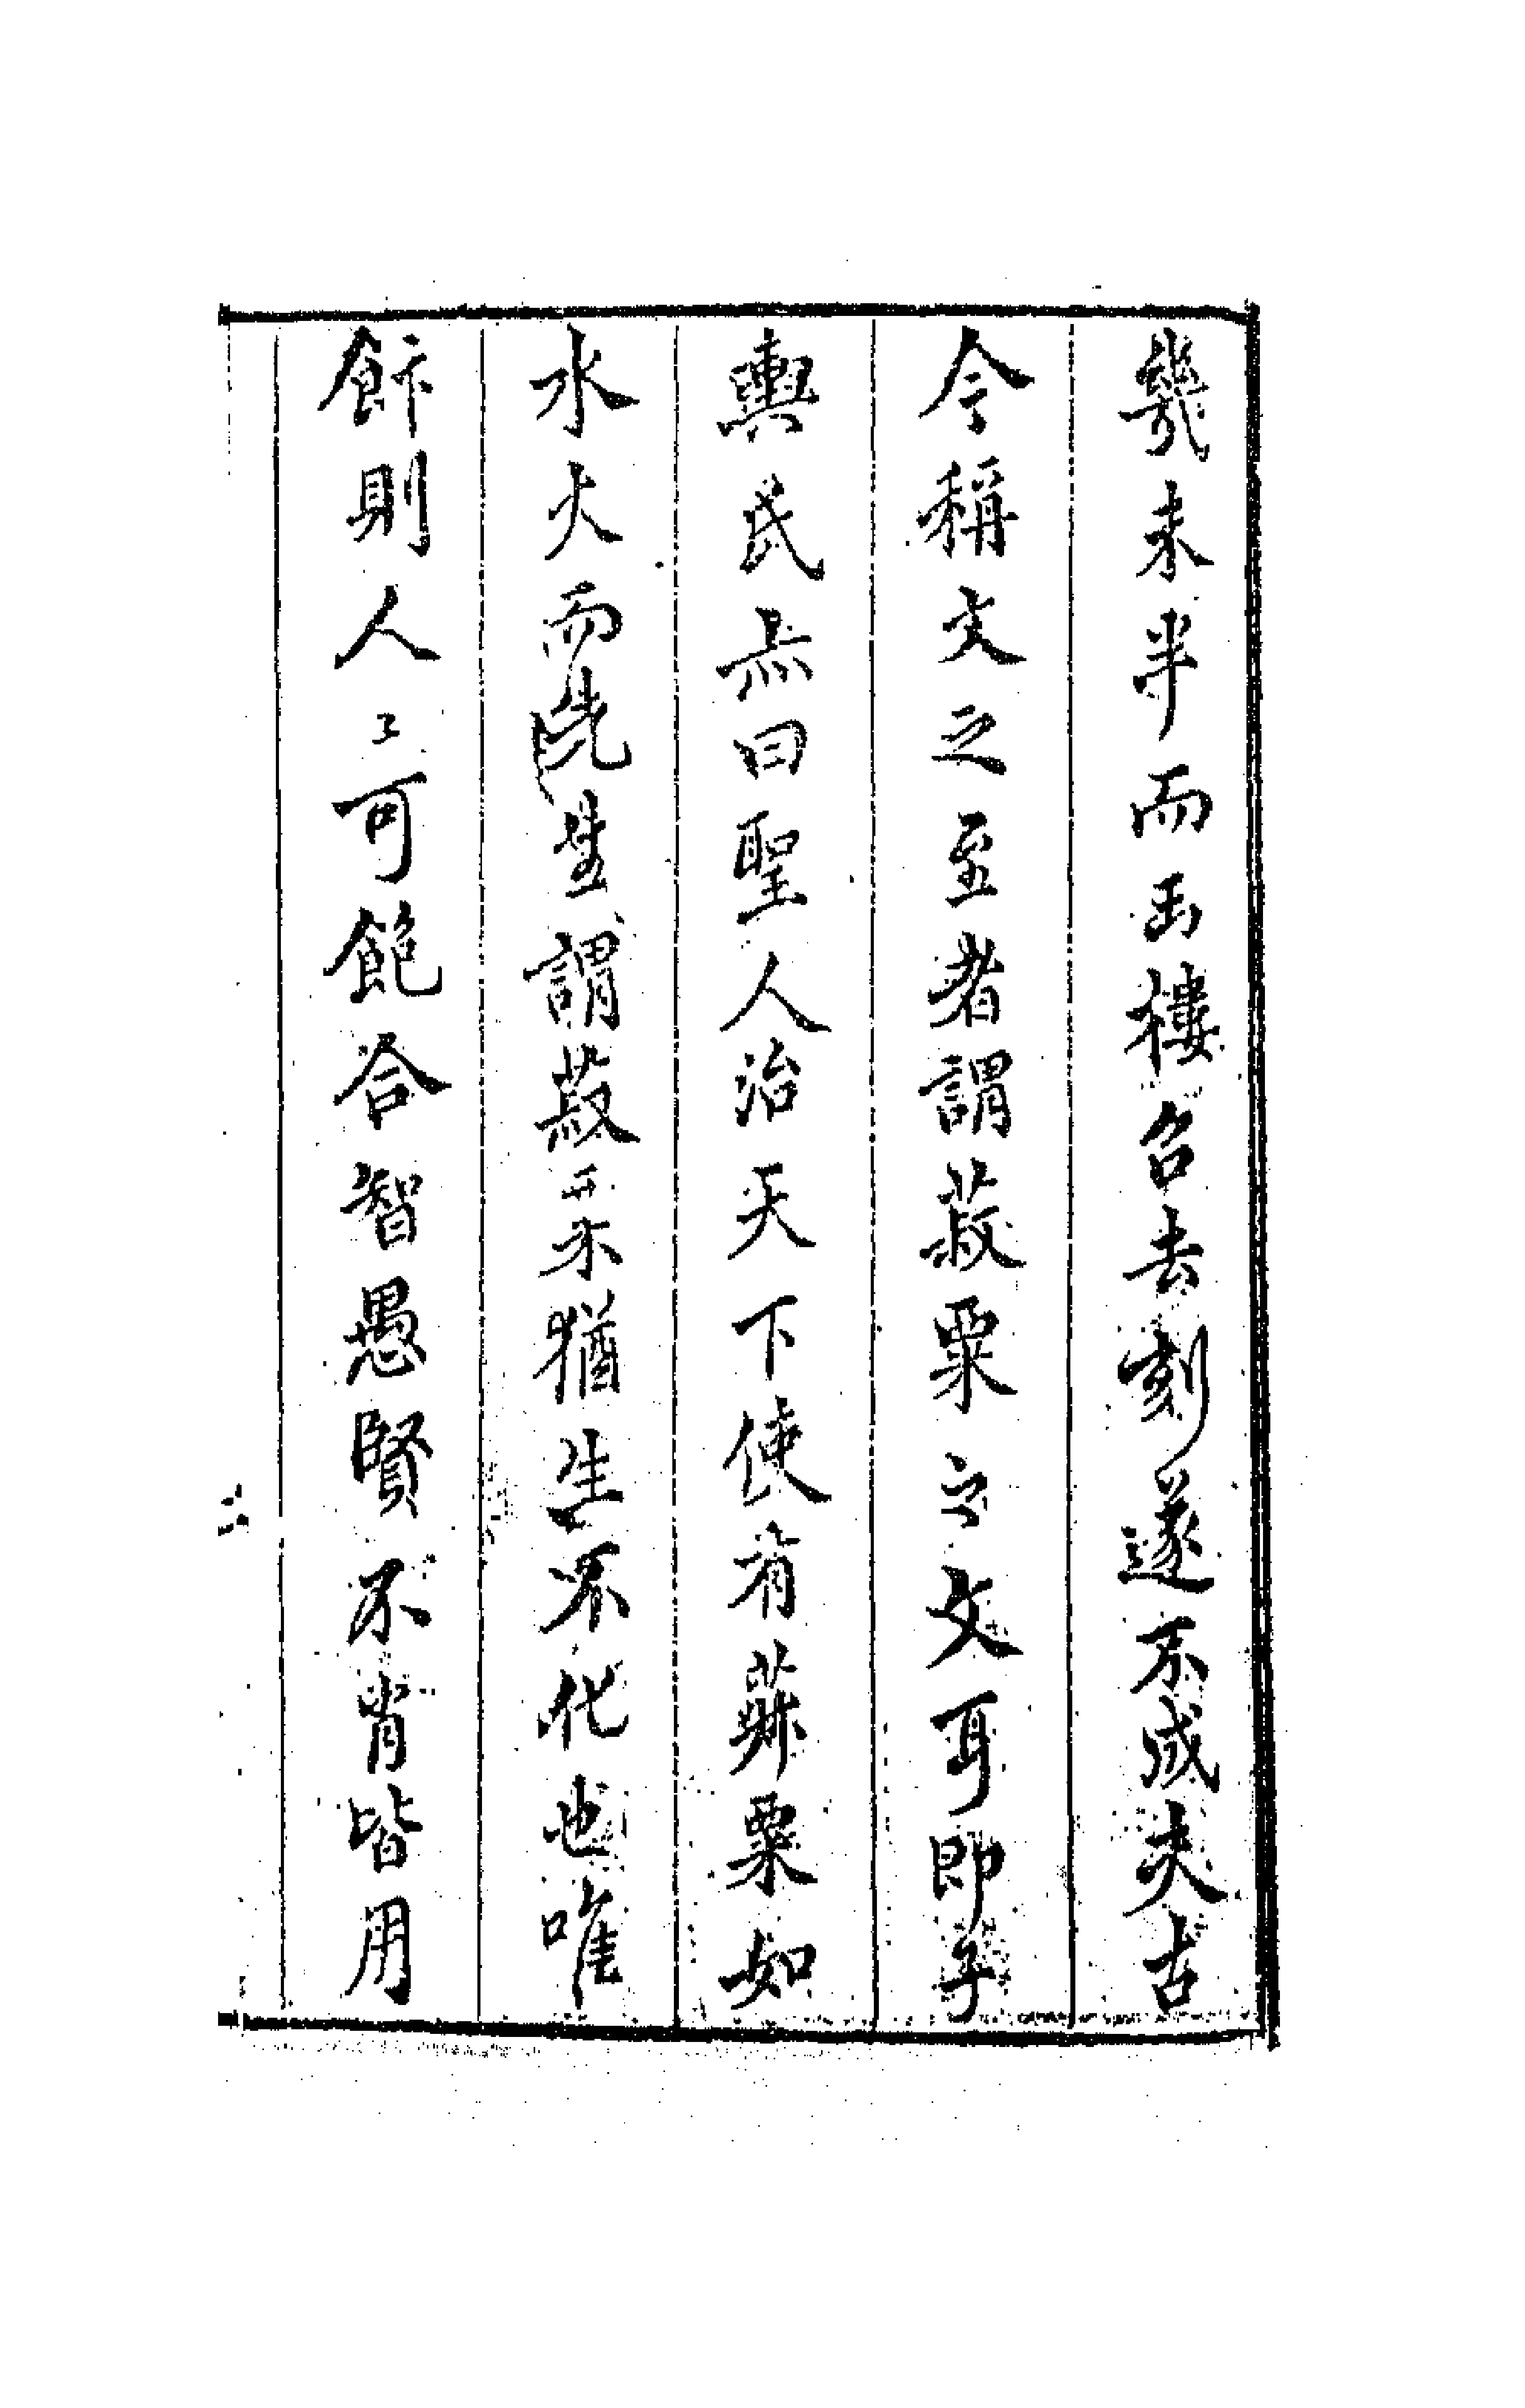 幾未半而玉樓召去刻遂不成夫古
今稱文之至者謂菽粟之文耳即子
輿氏亦曰聖人治天下使有菽粟如
水火而先生謂菽粟猶生不化也唯
飰則人〻可飽合智愚賢不肖皆用